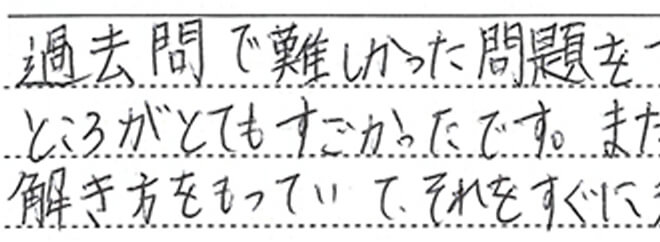 過去問で難しかった問題を
ところがとてもすごかったです。また
解き方をもっていて、それをすぐに